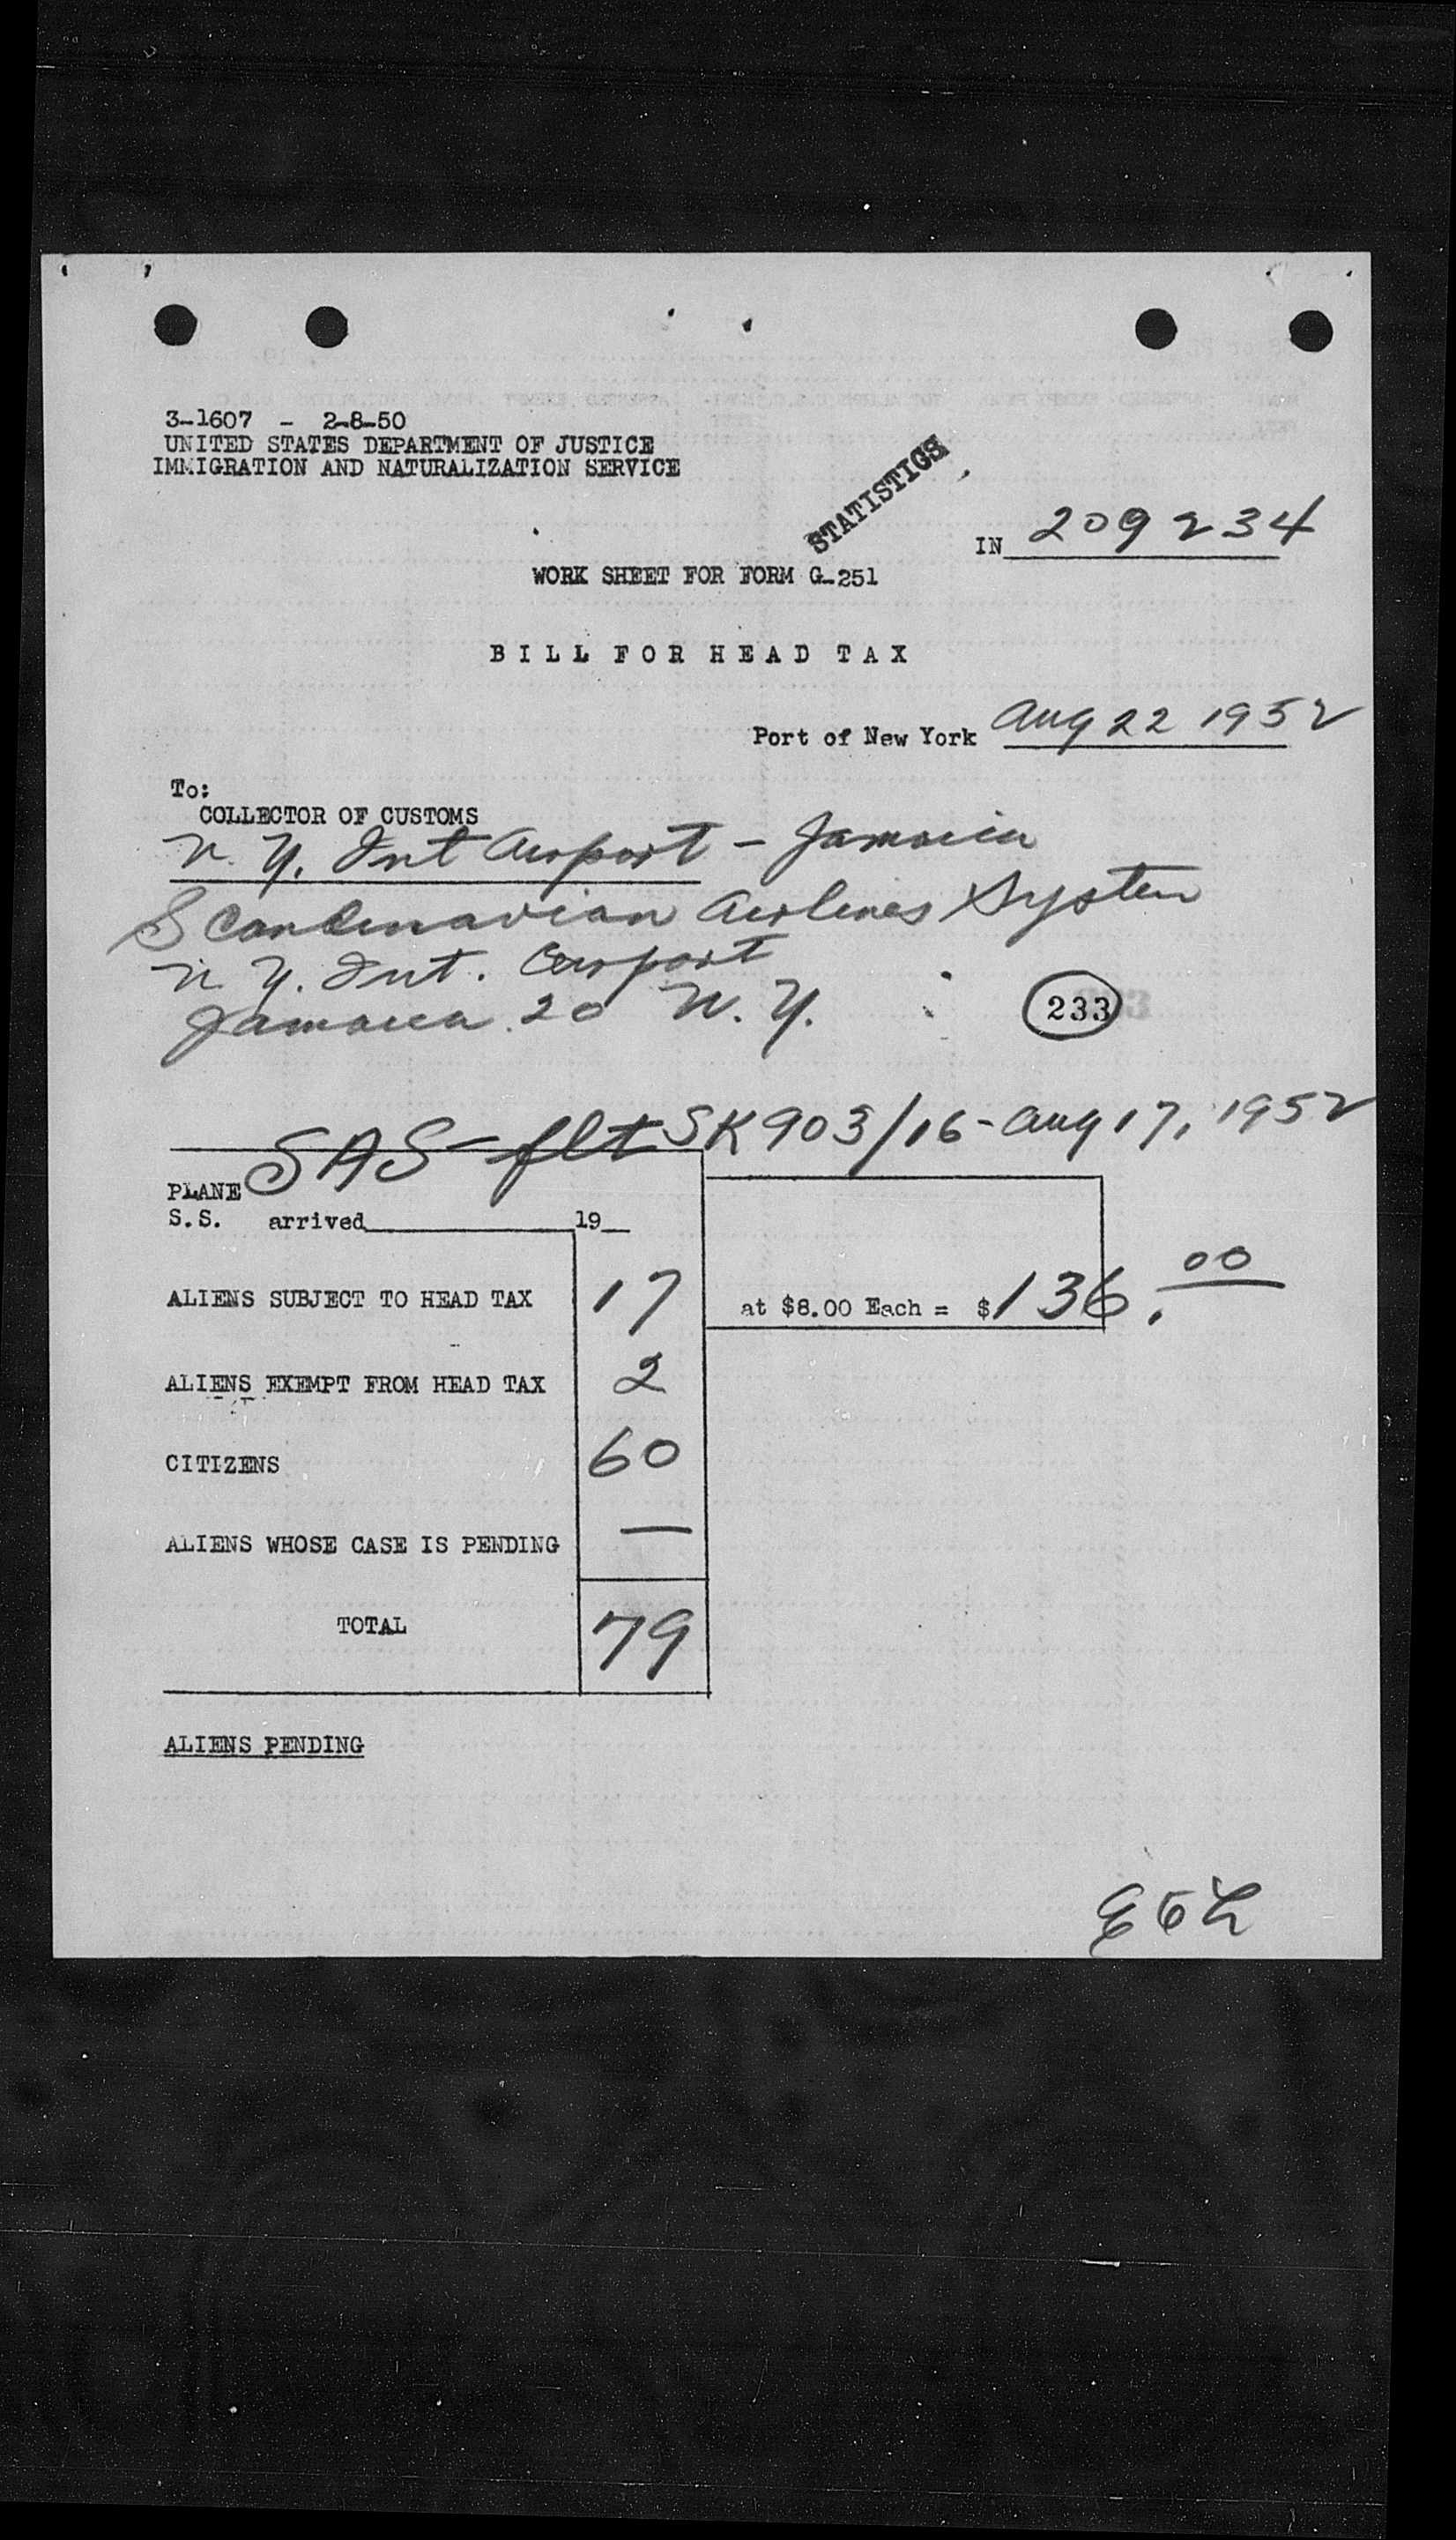 3-1607 - 2-8-50
UNITED STATES DEPARTMENT OF JUSTICE
IMMIGRATION AND NATURALIZATION SERVICE
STATISTICS
IN 209234
WORK SHEET FOR FORM G-251
BILL FOR HEAD TAX
Port of New York Aug 22 1952
To:
COLLECTOR OF CUSTOMS
N.Y. Int Airport - Jamaica
Scandinavian Airlines System
N.Y. Int. Airport
Jamaica 20 N.Y.
233
SAS-flt SK903/16-Aug 17, 1952
PLANE
S.S. arrived 19
ALIENS SUBJECT TO HEAD TAX 17 at $8.00 Each = $136.00
ALIENS EXEMPT FROM HEAD TAX 2
CITIZENS 60
ALIENS WHOSE CASE IS PENDING —
TOTAL 79
ALIENS PENDING